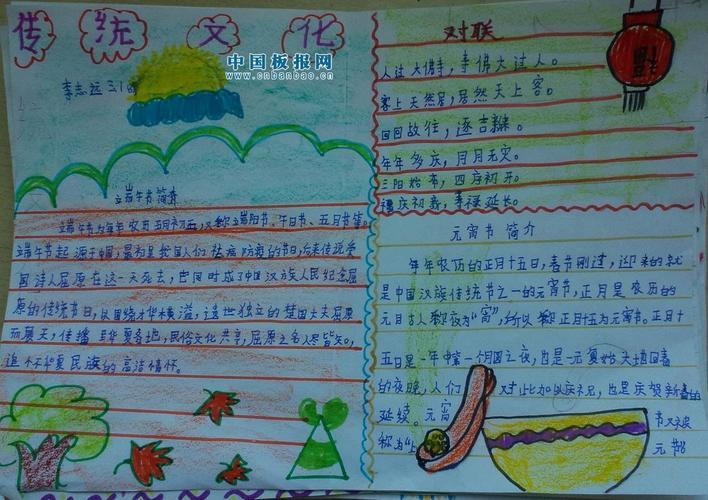 传统文化
中国板报网
www.cnbanbao.cn
李志远 三1班
端午节简介
端午节为每年农历五月初五，又称端阳节、午日节、五月节等。
端午节起源于中国，最初是我国人们祛病防疫的节日，后来传说爱
国诗人屈原在这一天死去，也同时成了中国汉族人民纪念屈
原的传统节日，以围绕才华横溢、遗世独立的楚国大夫屈原
而展天，传播至华夏各地，民俗文化共享，屈原之名人尽皆知，
追怀华夏民族的高洁情怀。
对联
福
人过大佛寺，寺佛大过人。
客上天然居，居然天上客。
年年多庆，月月无灾。
三阳始布，四序初开。
元宵节 简介
每年农历的正月十五日，春节刚过，迎来的就
是中国汉族传统节之一的元宵节，正月是农历的
元月古人称夜为“宵”，所以称正月十五为元宵节。正月十
五日是一年中第一个月圆之夜，也是一元复始大地回春
的夜晚，人们对此加以庆祝，也是庆贺新春的
延续。元宵节又被
称为“上元节”